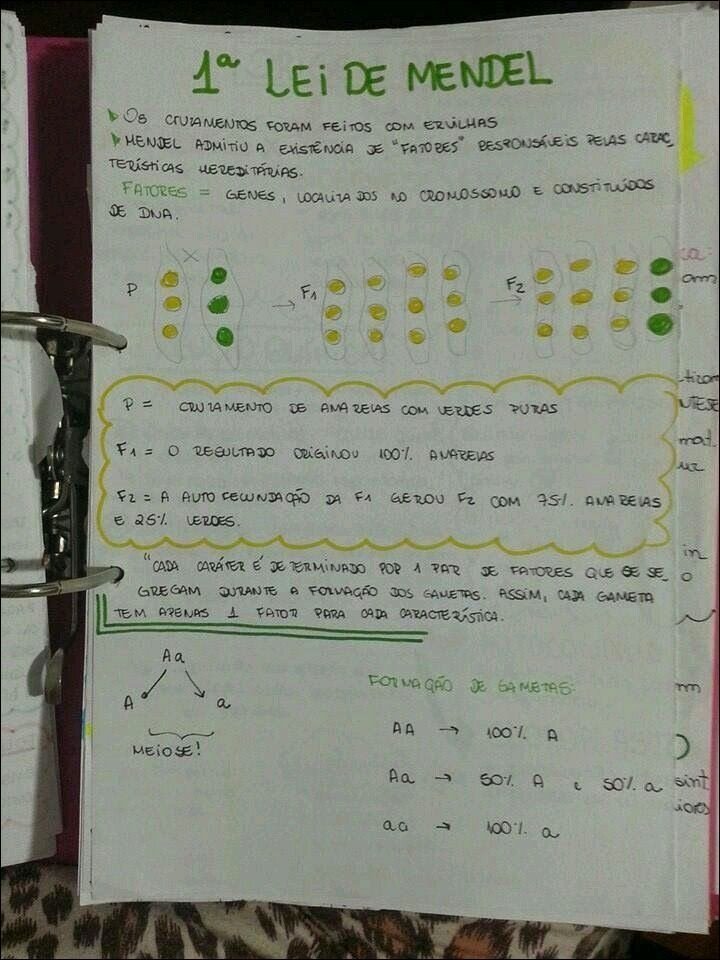 1ª LEI DE MENDEL
OS CRUZAMENTOS FORAM FEITOS COM ERVILHAS
MENDEL ADMITIU A EXISTÊNCIA DE "FATORES" RESPONSÁVEIS PELAS CARAC
TERÍSTICAS HEREDITÁRIAS.
FATORES = GENES, LOCALIZADOS NO CROMOSSOMO E CONSTITUÍDOS
DE DNA.
P × → F1 → F2
P = CRUZAMENTO DE AMARELAS COM VERDES PURAS
F1 = O RESULTADO ORIGINOU 100% AMARELAS
F2 = A AUTO FECUNDAÇÃO DA F1 GEROU F2 COM 75% AMARELAS
E 25% VERDES.
"CADA CARÁTER É DETERMINADO POR 1 PAR DE FATORES QUE SE SE
GREGAM DURANTE A FORMAÇÃO DOS GAMETAS. ASSIM, CADA GAMETA
TEM APENAS 1 FATOR PARA CADA CARACTERÍSTICA.
Aa
A a
MEIOSE!
FORMAÇÃO DE GAMETAS:
AA → 100% A
Aa → 50% A e 50% a
aa → 100% a
ca:
om
mat.
in
o
m